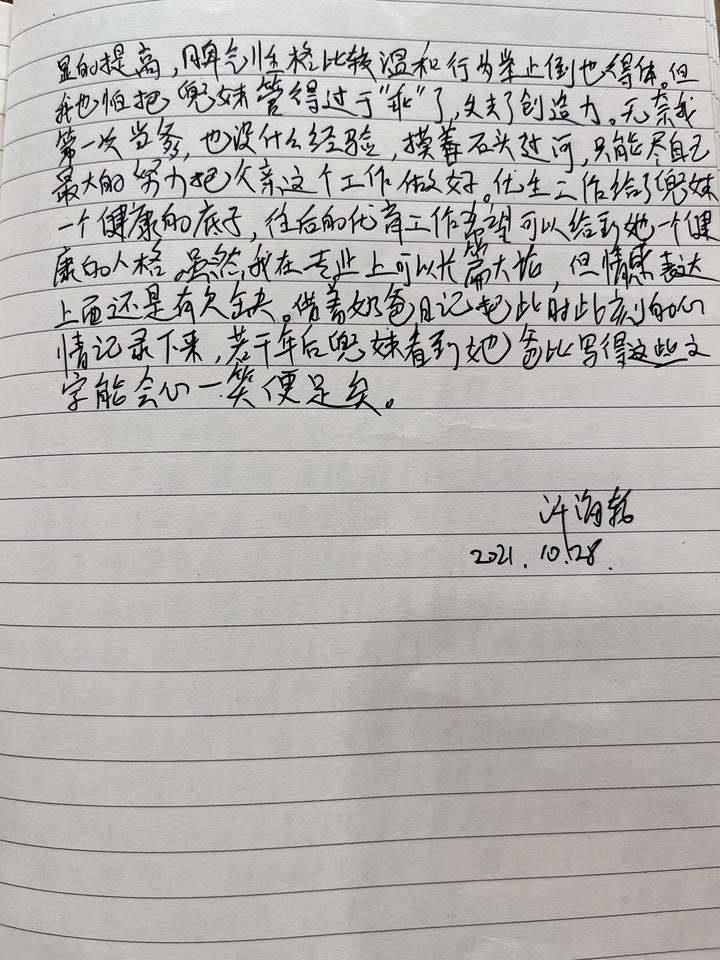 显的提高,脾气性格比较温和行为举止倒也得体。但
我也怕把兜妹管得过于"乖"了,失去了创造力。无奈我
第一次当爹,也没什么经验,摸着石头过河,只能尽自己
最大的努力把父亲这个工作做好。优生工作给了兜妹
一个健康的底子,往后的优育工作希望可以给到她一个健
康的人格。虽然我在专业上可以长篇大论,但情感表达
上面还是有欠缺。借着奶爸日记把此时此刻的心
情记录下来,若干年后兜妹看到她爸比写得这些文
字能会心一笑便足矣。
许海
2021.10.28.